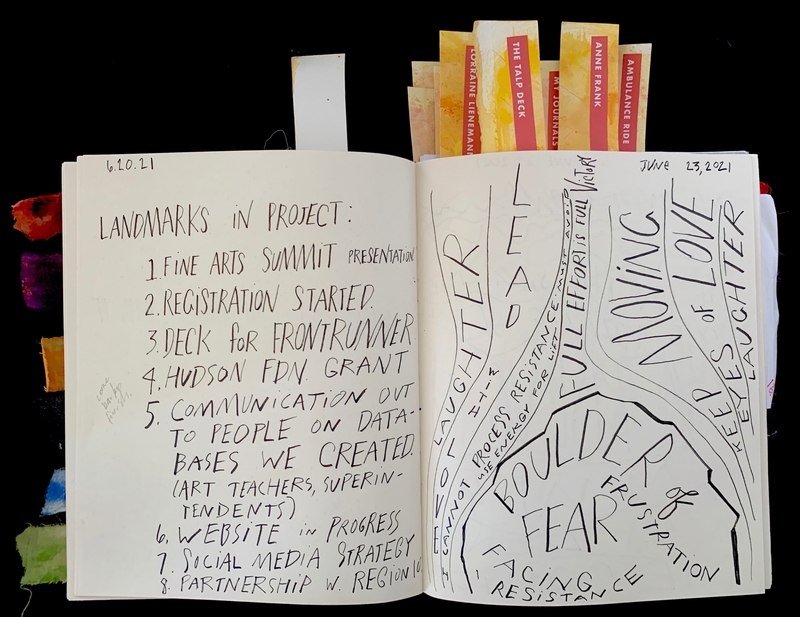 LORRAINE LIENEMANN
THE TALP DECK
MY JOURNALS
ANNE FRANK
AMBULANCE RIDE
6.20.21
LANDMARKS IN PROJECT:
1. FINE ARTS SUMMIT PRESENTATION
2. REGISTRATION STARTED.
3. DECK for FRONTRUNNER
4. HUDSON FDN. GRANT
5. COMMUNICATION OUT
TO PEOPLE ON DATA-
BASES WE CREATED.
(ART TEACHERS, SUPERIN-
TENDENTS)
6. WEBSITE in PROGRESS
7. SOCIAL MEDIA STRATEGY
8. PARTNERSHIP W. REGION 10.
JUNE 23, 2021
LAUGHTER
LEAD
I CANNOT
PROCESS RESISTANCE. MUST AVOID
USE ENERGY FOR LIFT
FULL EFFORT IS FULL VICTORY
MOVING
KEEP EYES of LOVE
LAUGHTER
BOULDER of
FEAR
FRUSTRATION
FACING
RESISTANCE